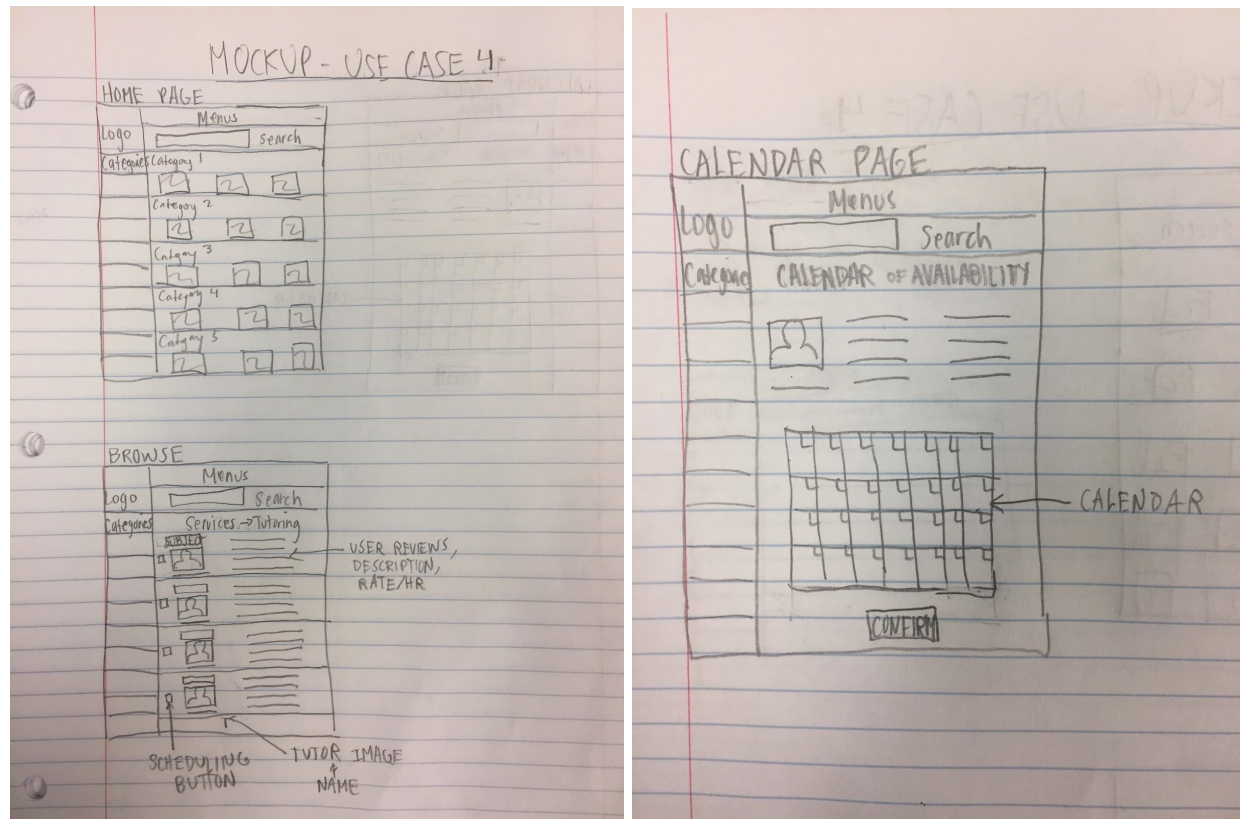 MOCKUP - USE CASE 4
HOME PAGE
Menus
Logo
Search
Categories
Category 1
Category 2
Catgory 3
Category 4
Catgory 5
BROWSE
Menus
Logo
Search
Categories
Services → Tutoring
SUBJECT
USER REVIEWS,
DESCRIPTION,
RATE/HR
SCHEDULING
BUTTON
TUTOR IMAGE
&
NAME
CALENDAR PAGE
Menus
Logo
Search
Categories
CALENDAR OF AVAILABILITY
CALENDAR
CONFIRM